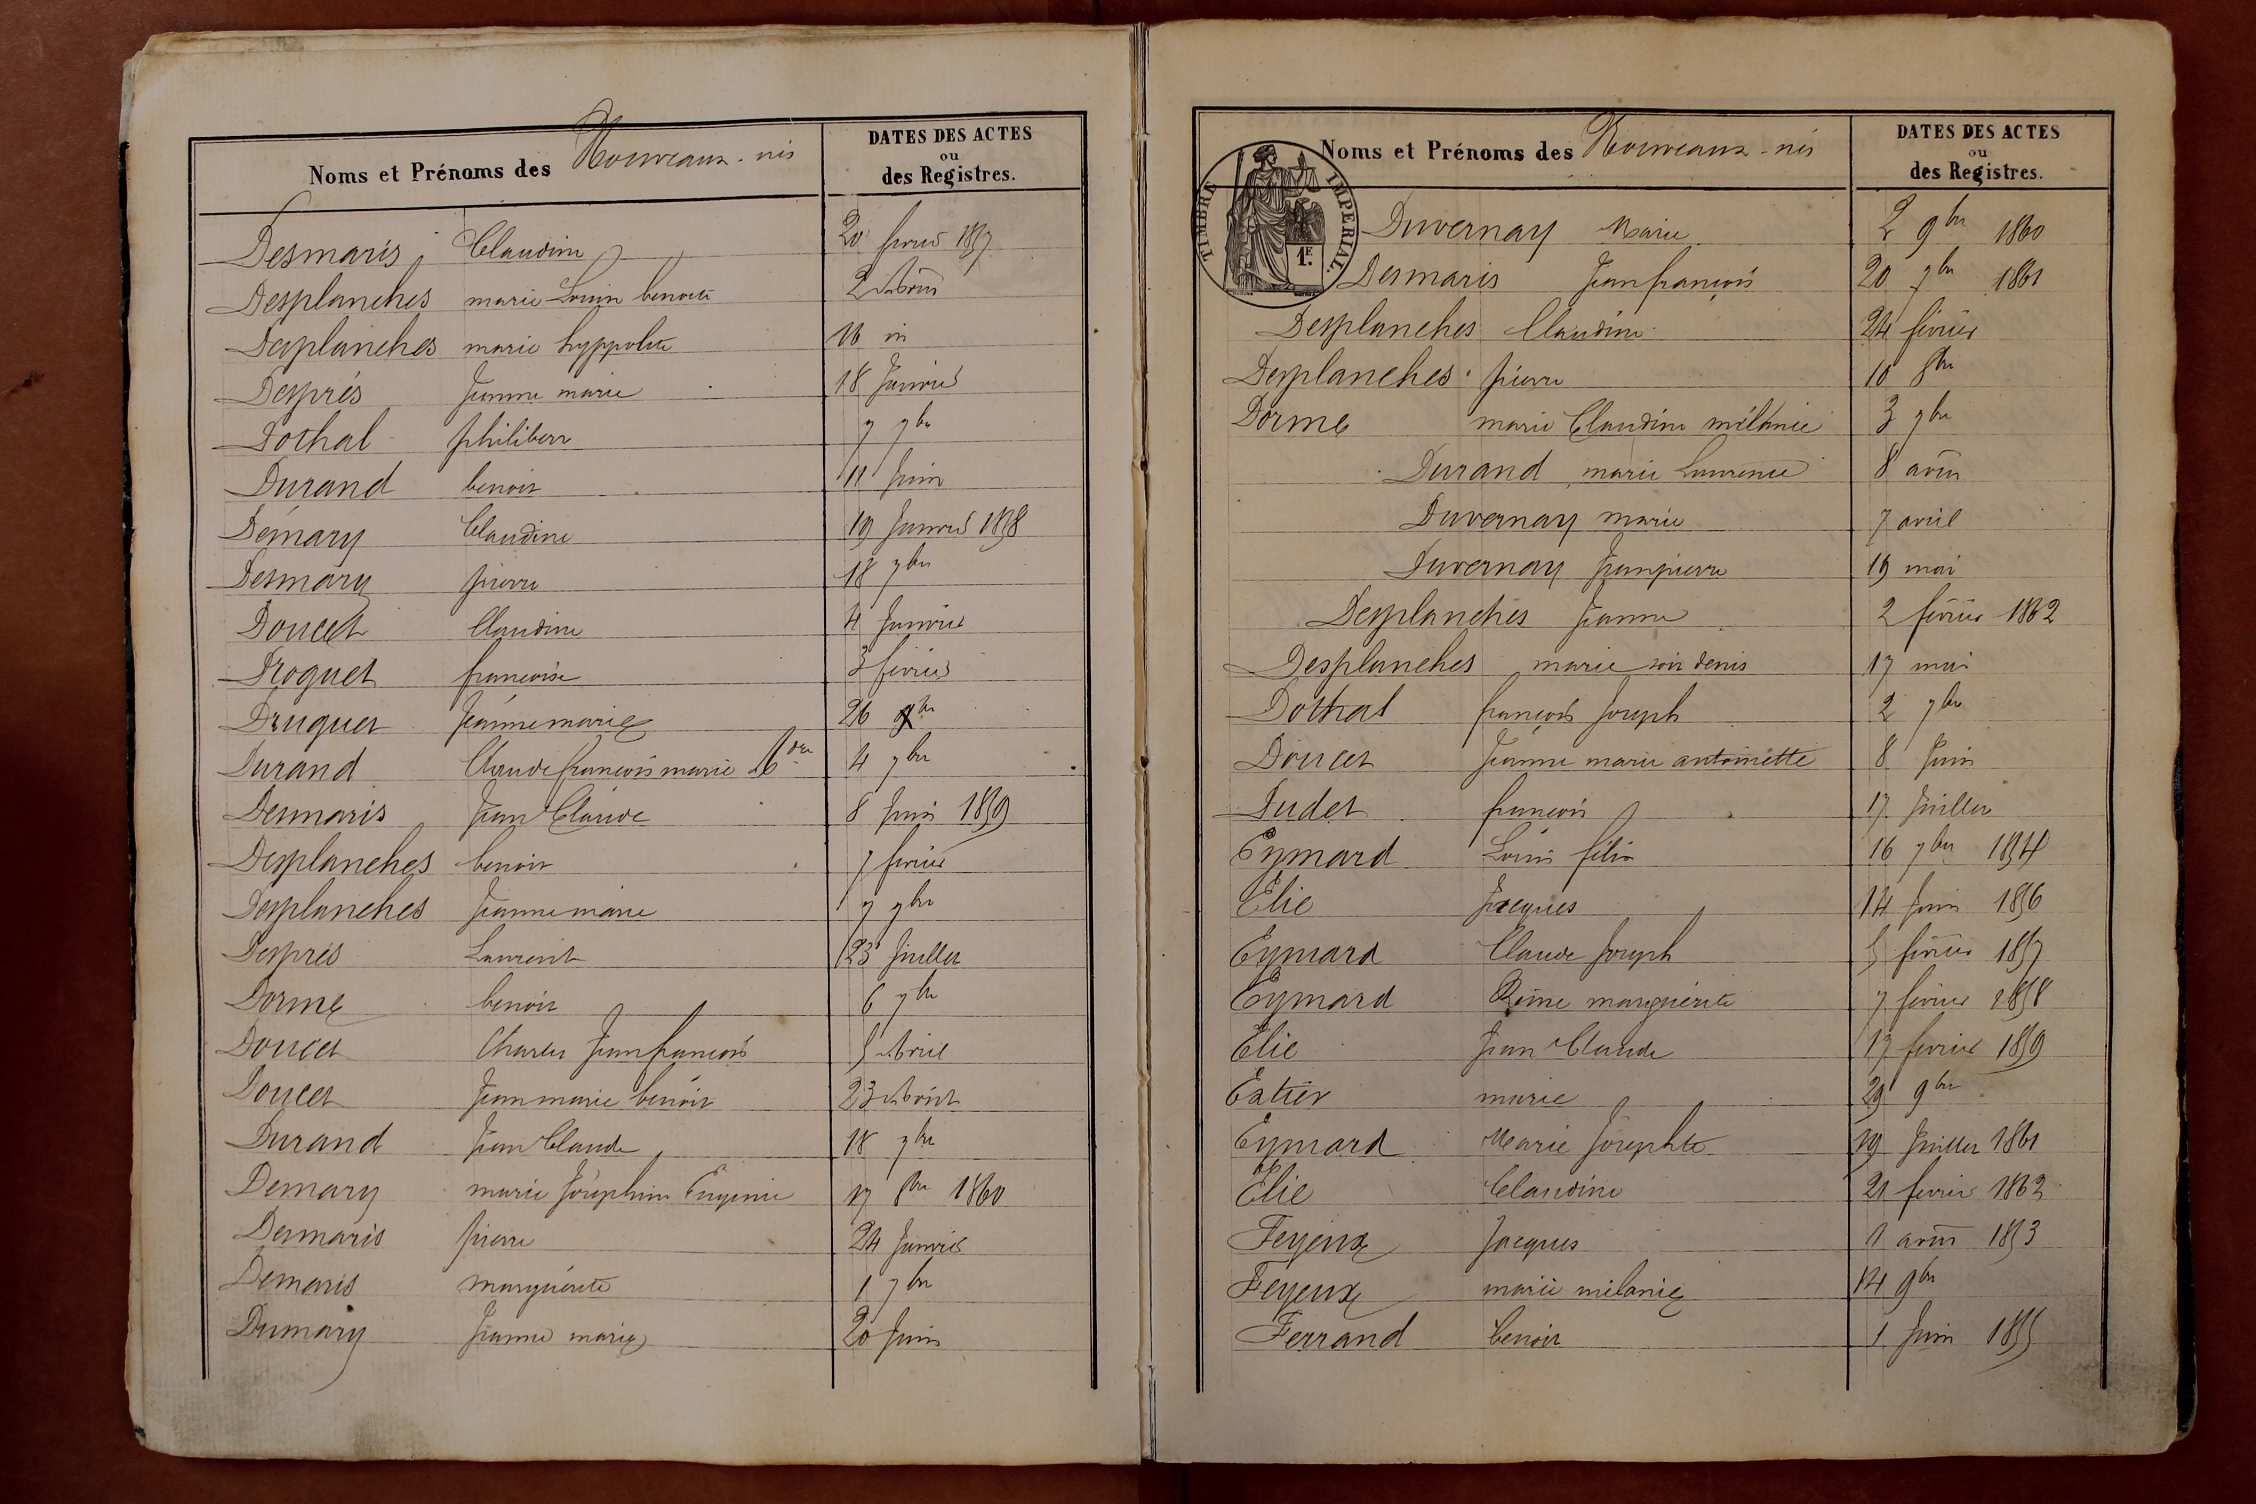 Noms et Prénoms des Nouveaux-nés
DATES DES ACTES
ou
des Registres.
Desmaris Claudine 20 février 1857
Desplanches marie Louise benoite 2 Août
Desplanches marie hyppolite 16 id
Després Jeanne marie 18 Janvier
Dothal philibert 7 7bre
Durand benoit 11 Juin
Démary Claudine 19 Janvier 1858
Desmary pierre 18 7bre
Doucet Claudine 4 Janvier
Droguet françoise 3 février
Druguet Jeanne marie 26
Durand Claude françois marie 4 7bre
Desmaris Jean Claude 8 Juin 1859
Desplanches benoit 7 février
Desplanches Jeanne marie 7 9bre
Després Laurent 23 Juillet
Dorme benoit 6 7bre
Doucet Charles Jean françois 5 Avril
Doucet Jean marie benoit 23 Août
Durand Jean Claude 18 7bre
Demary marie Joséphine Eugenie 17 8bre 1860
Desmaris pierre 24 Janvier
Demaris marguérite 1 7bre
Dumary Jeanne marie 20 Juin
TIMBRE IMPERIAL.
1F.
Noms et Prénoms des Nouveaux-nés
DATES DES ACTES
ou
des Registres.
Duvernay Marie 2 9bre 1860
Desmaris Jean françois 20 7bre 1861
Desplanches Claudine 24 février
Desplanches pierre 10 8bre
Dorme marie Claudine mélanie 3 7bre
Durand marie Laurence 8 août
Duvernay marie 7 avril
Duvernay Jean pierre 19 mai
Desplanches Jeanne 2 février 1862
Desplanches marie denis 17 mai
Dothal françois Joseph 2 7bre
Doucet Jeanne marie antoinette 8 Juin
Dudet françois 17 Juillet
Eymard Louis félix 16 7bre 1854
Elie Jacques 14 Juin 1856
Eymard Claude Joseph 5 février 1857
Eymard Reine marguérite 7 février 1858
Elie Jean Claude 17 février 1859
Extier marie 29 9bre
Eymard Marie Josephte 19 Juillet 1861
Elie Claudine 21 février 1862
Feyeux Jacques 1 août 1853
Feyeux marie mélanie 14 9bre
Ferrand benoit 1 Juin 1855